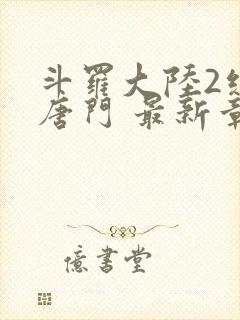 斗羅大陸2絕
唐門 最新章
億書堂